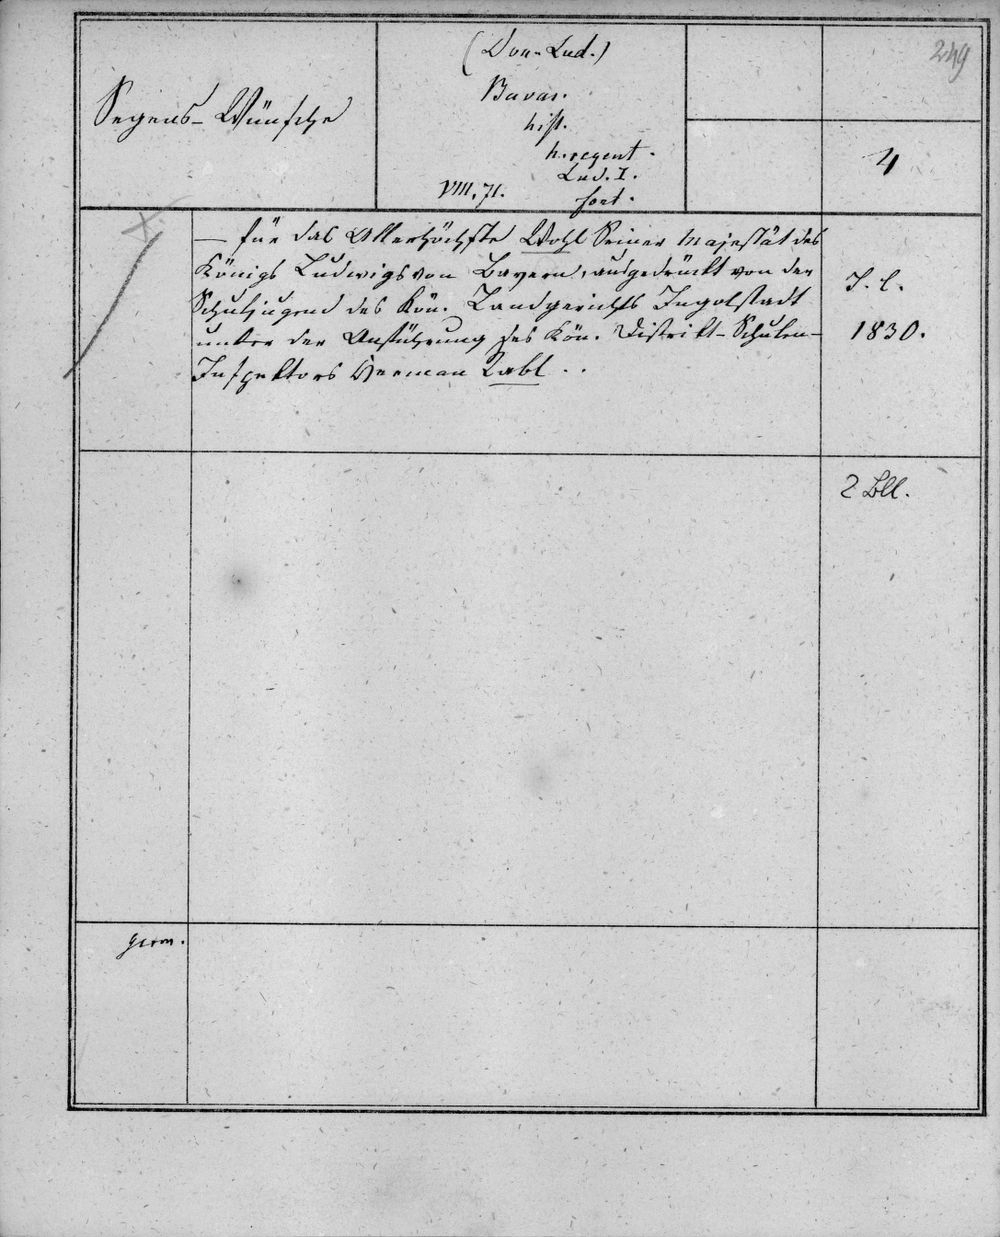 249
Segens-Wünsche
(Don. Lud.)
Bavar.
hist.
h. regent.
Lud. I.
VIII, 71.
fort.
4
— für das Allerhöchste Wohl Seiner Majestät des
Königs Ludwigs von Bayern, ausgedrückt von der
Schuljugend des Kön. Landgerichts Ingolstadt
unter der Anführung des Kön. Distrikt-Schulen-
Inspektors German Rabl . .
S. l.
1830.
2 Bll.
germ.